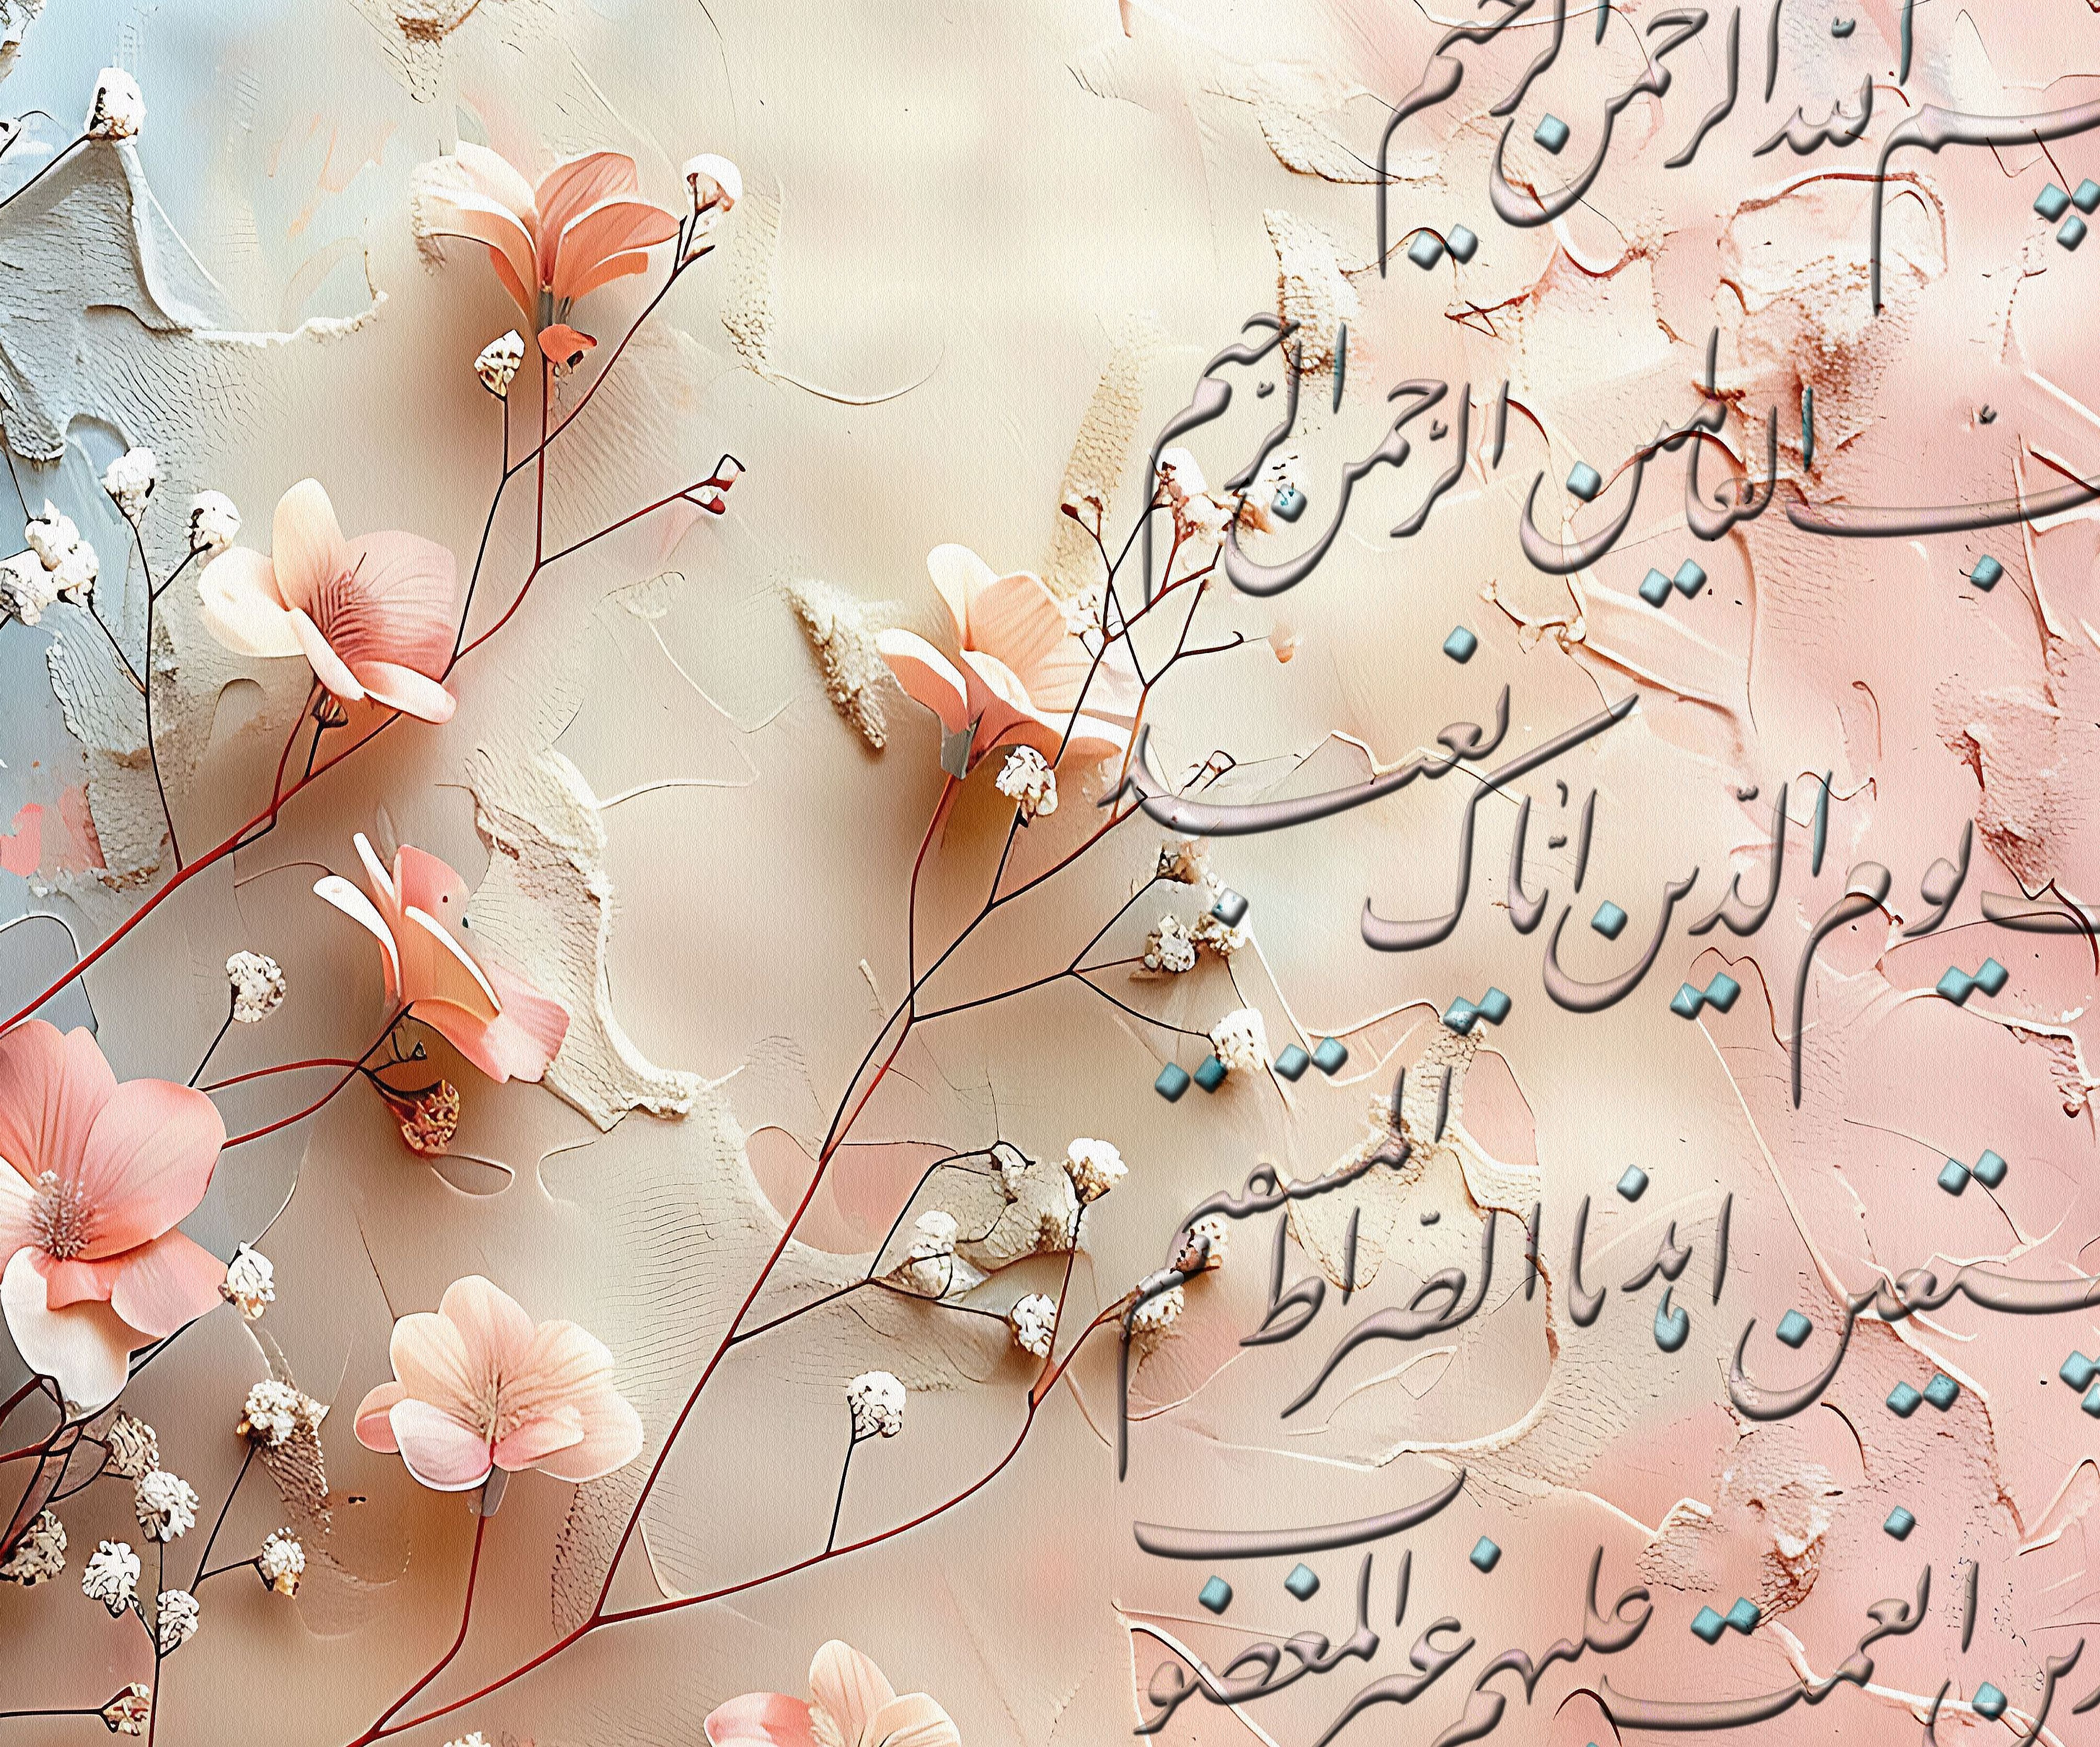 بسم الله الرحمن الرحیم
العالمین الرَّحمن الرَّحیم
یوم الدّین ایّاک نعبد
نستعین اهدنا الصّراط المستقیم
انعمت علیهم غیر المغضوب